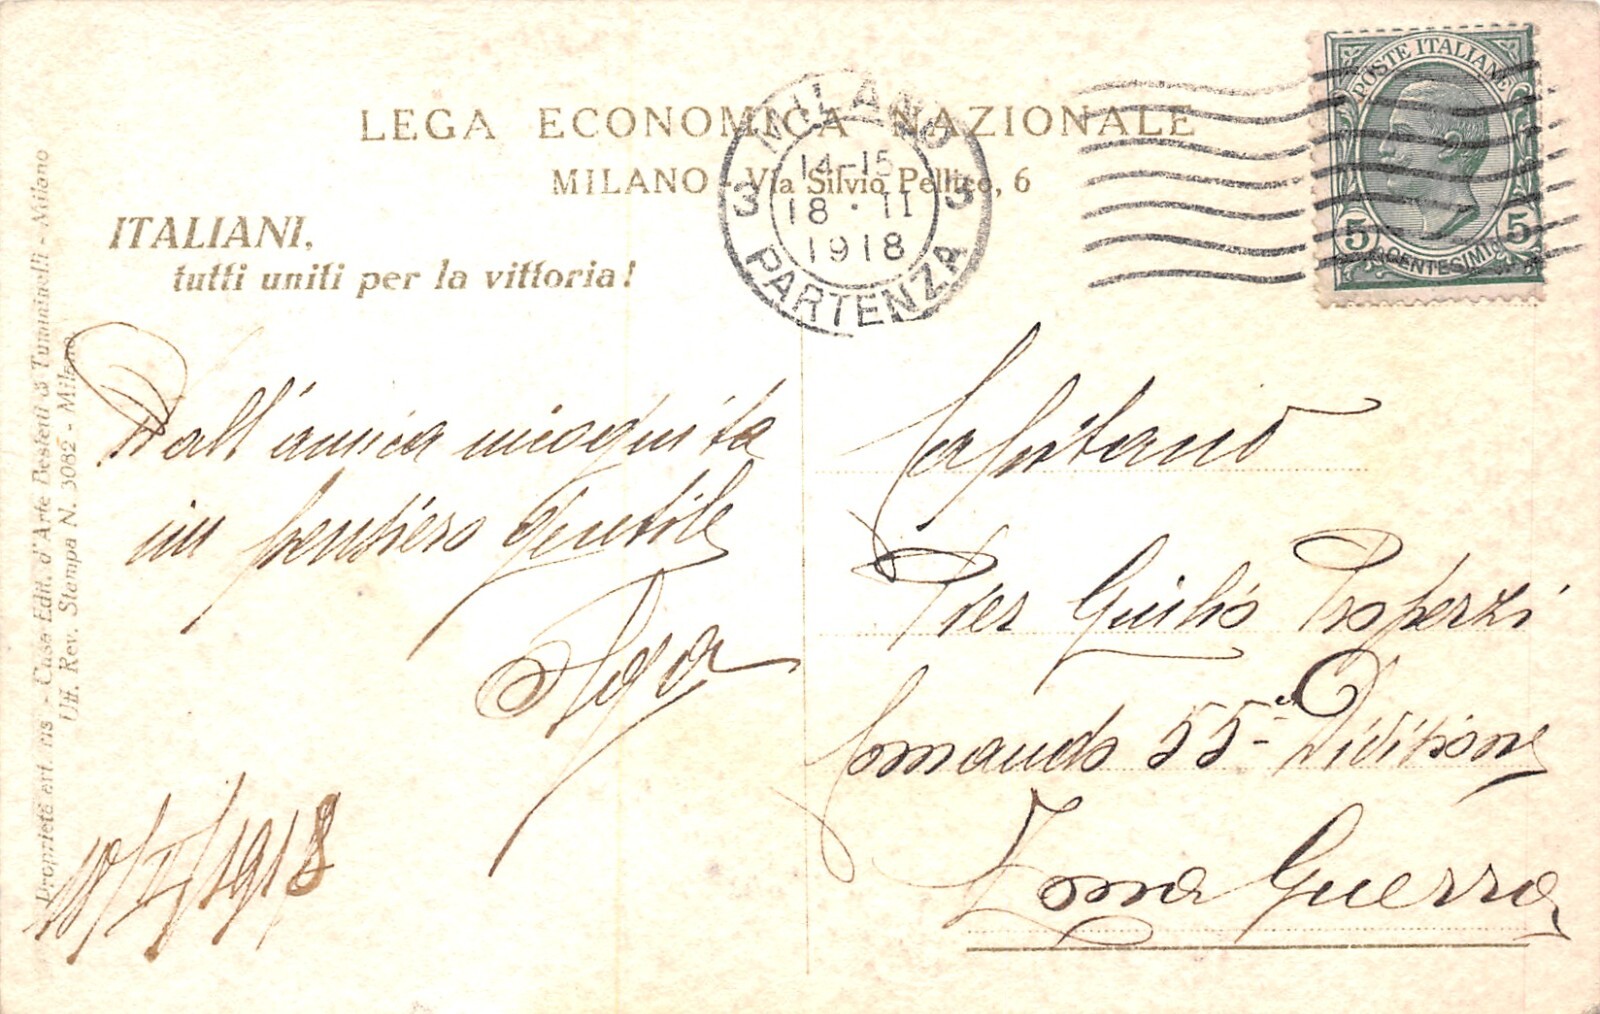 LEGA ECONOMICA NAZIONALE
MILANO - Via Silvio Pellico, 6
ITALIANI,
tutti uniti per la vittoria!
MILANO
14-15
18·II
1918
3 3
PARTENZA
POSTE ITALIANE
5 5
CENTESIMI
Dall'amica incognita
un pensiero gentile
18/II/1918
Capitano
Pier Giulio Properzi
Comando 55ª Divisione
Zona Guerra
Proprietà art. ris. - Casa Edit. d'Arte Bestetti & Tumminelli - Milano
Uff. Rev. Stampa N. 3082 - Milano